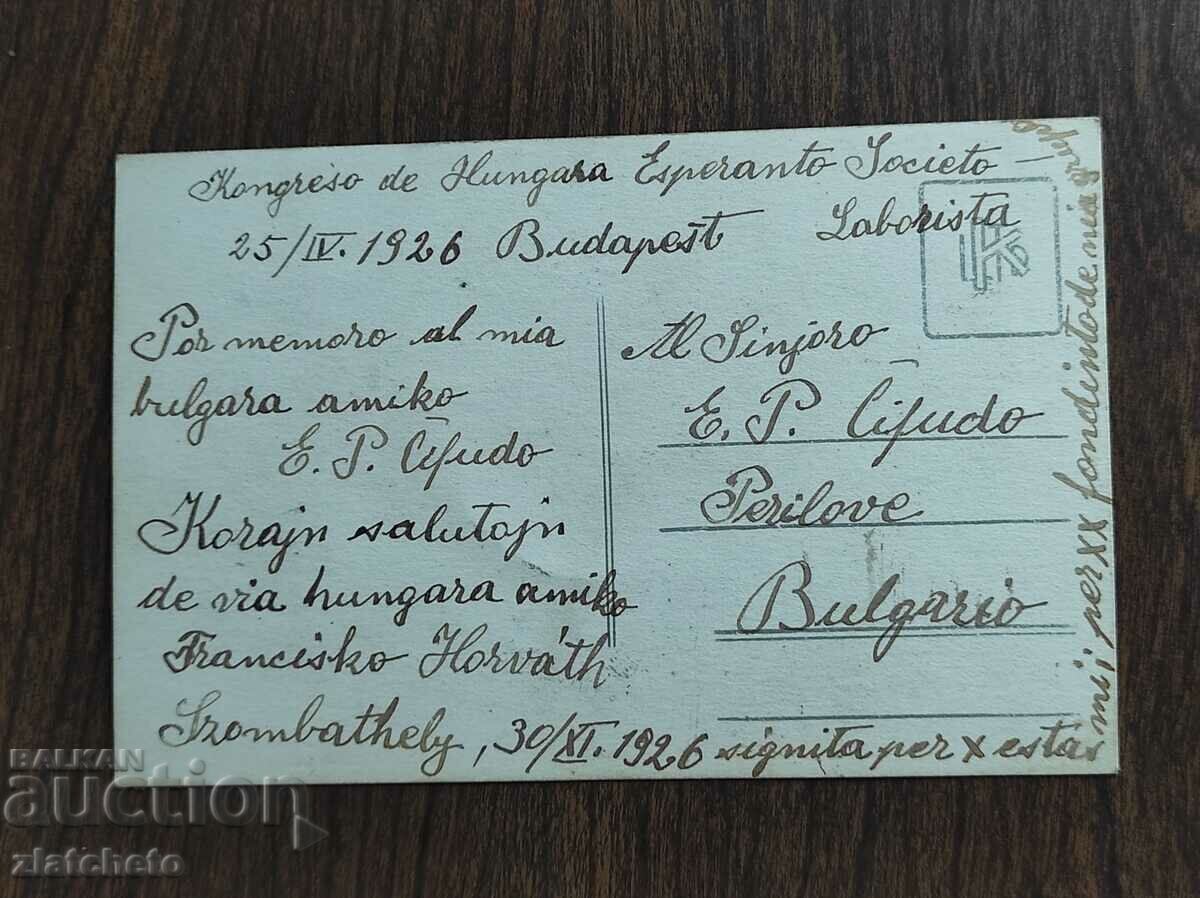 Kongreso de Hungara Esperanto Societo –
Laborista
25/IV. 1926 Budapest
Por memoro al mia
bulgara amiko
E. P. Cijudo
Korajn salutojn
de via hungara amiko
Francisko Horváth
Szombathely, 30/XI. 1926 signita per x estas
mi; per xx fondinto de nia grupo
Al Sinjoro
E. P. Cijudo
Perilove
Bulgario
BALKAN
auction
zlatcheto